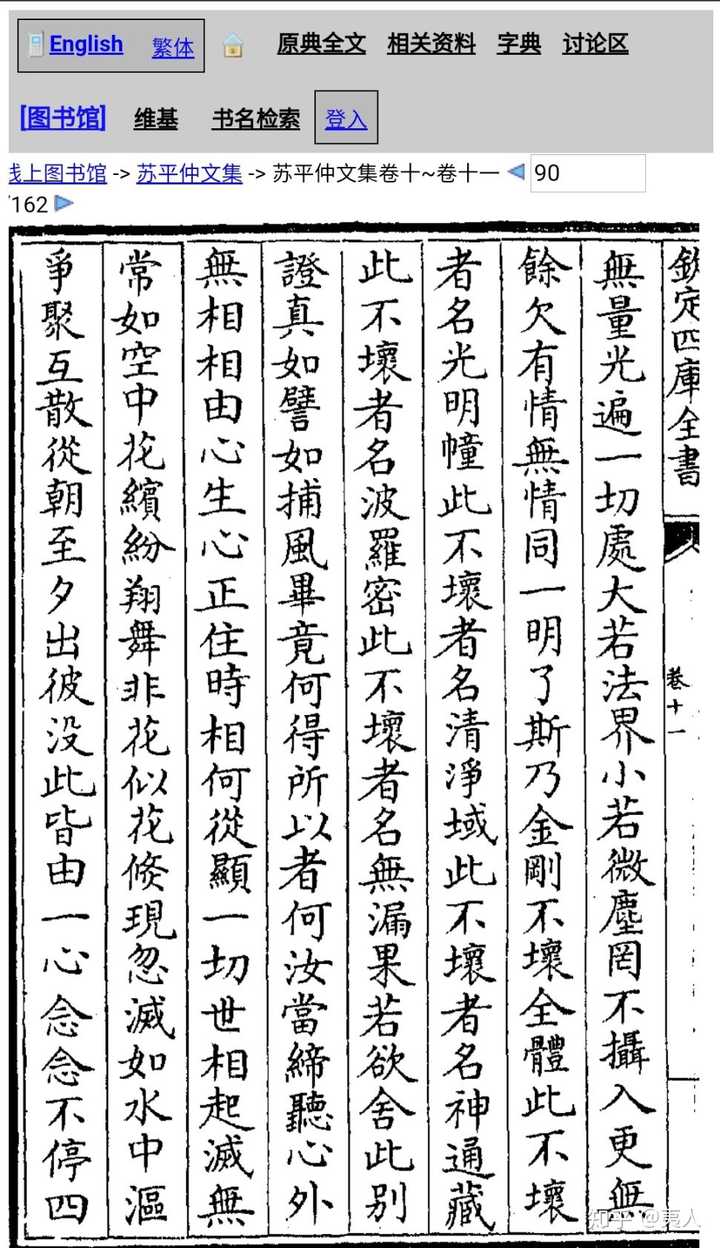 English 繁体 原典全文 相关资料 字典 讨论区
[图书馆] 维基 书名检索 登入
线上图书馆 -> 苏平仲文集 -> 苏平仲文集卷十~卷十一 90
/162
欽定四庫全書
卷十一
無量光遍一切處大若法界小若微塵罔不攝入更無
餘欠有情無情同一明了斯乃金剛不壞全體此不壞
者名光明幢此不壞者名清淨域此不壞者名神通藏
此不壞者名波羅密此不壞者名無漏果若欲舍此别
證真如譬如捕風畢竟何得所以者何汝當締聽心外
無相相由心生心正住時相何從顯一切世相起滅無
常如空中花繽紛翔舞非花似花倐現忽滅如水中漚
爭聚互散從朝至夕出彼没此皆由一心念念不停四
知乎 @夷人